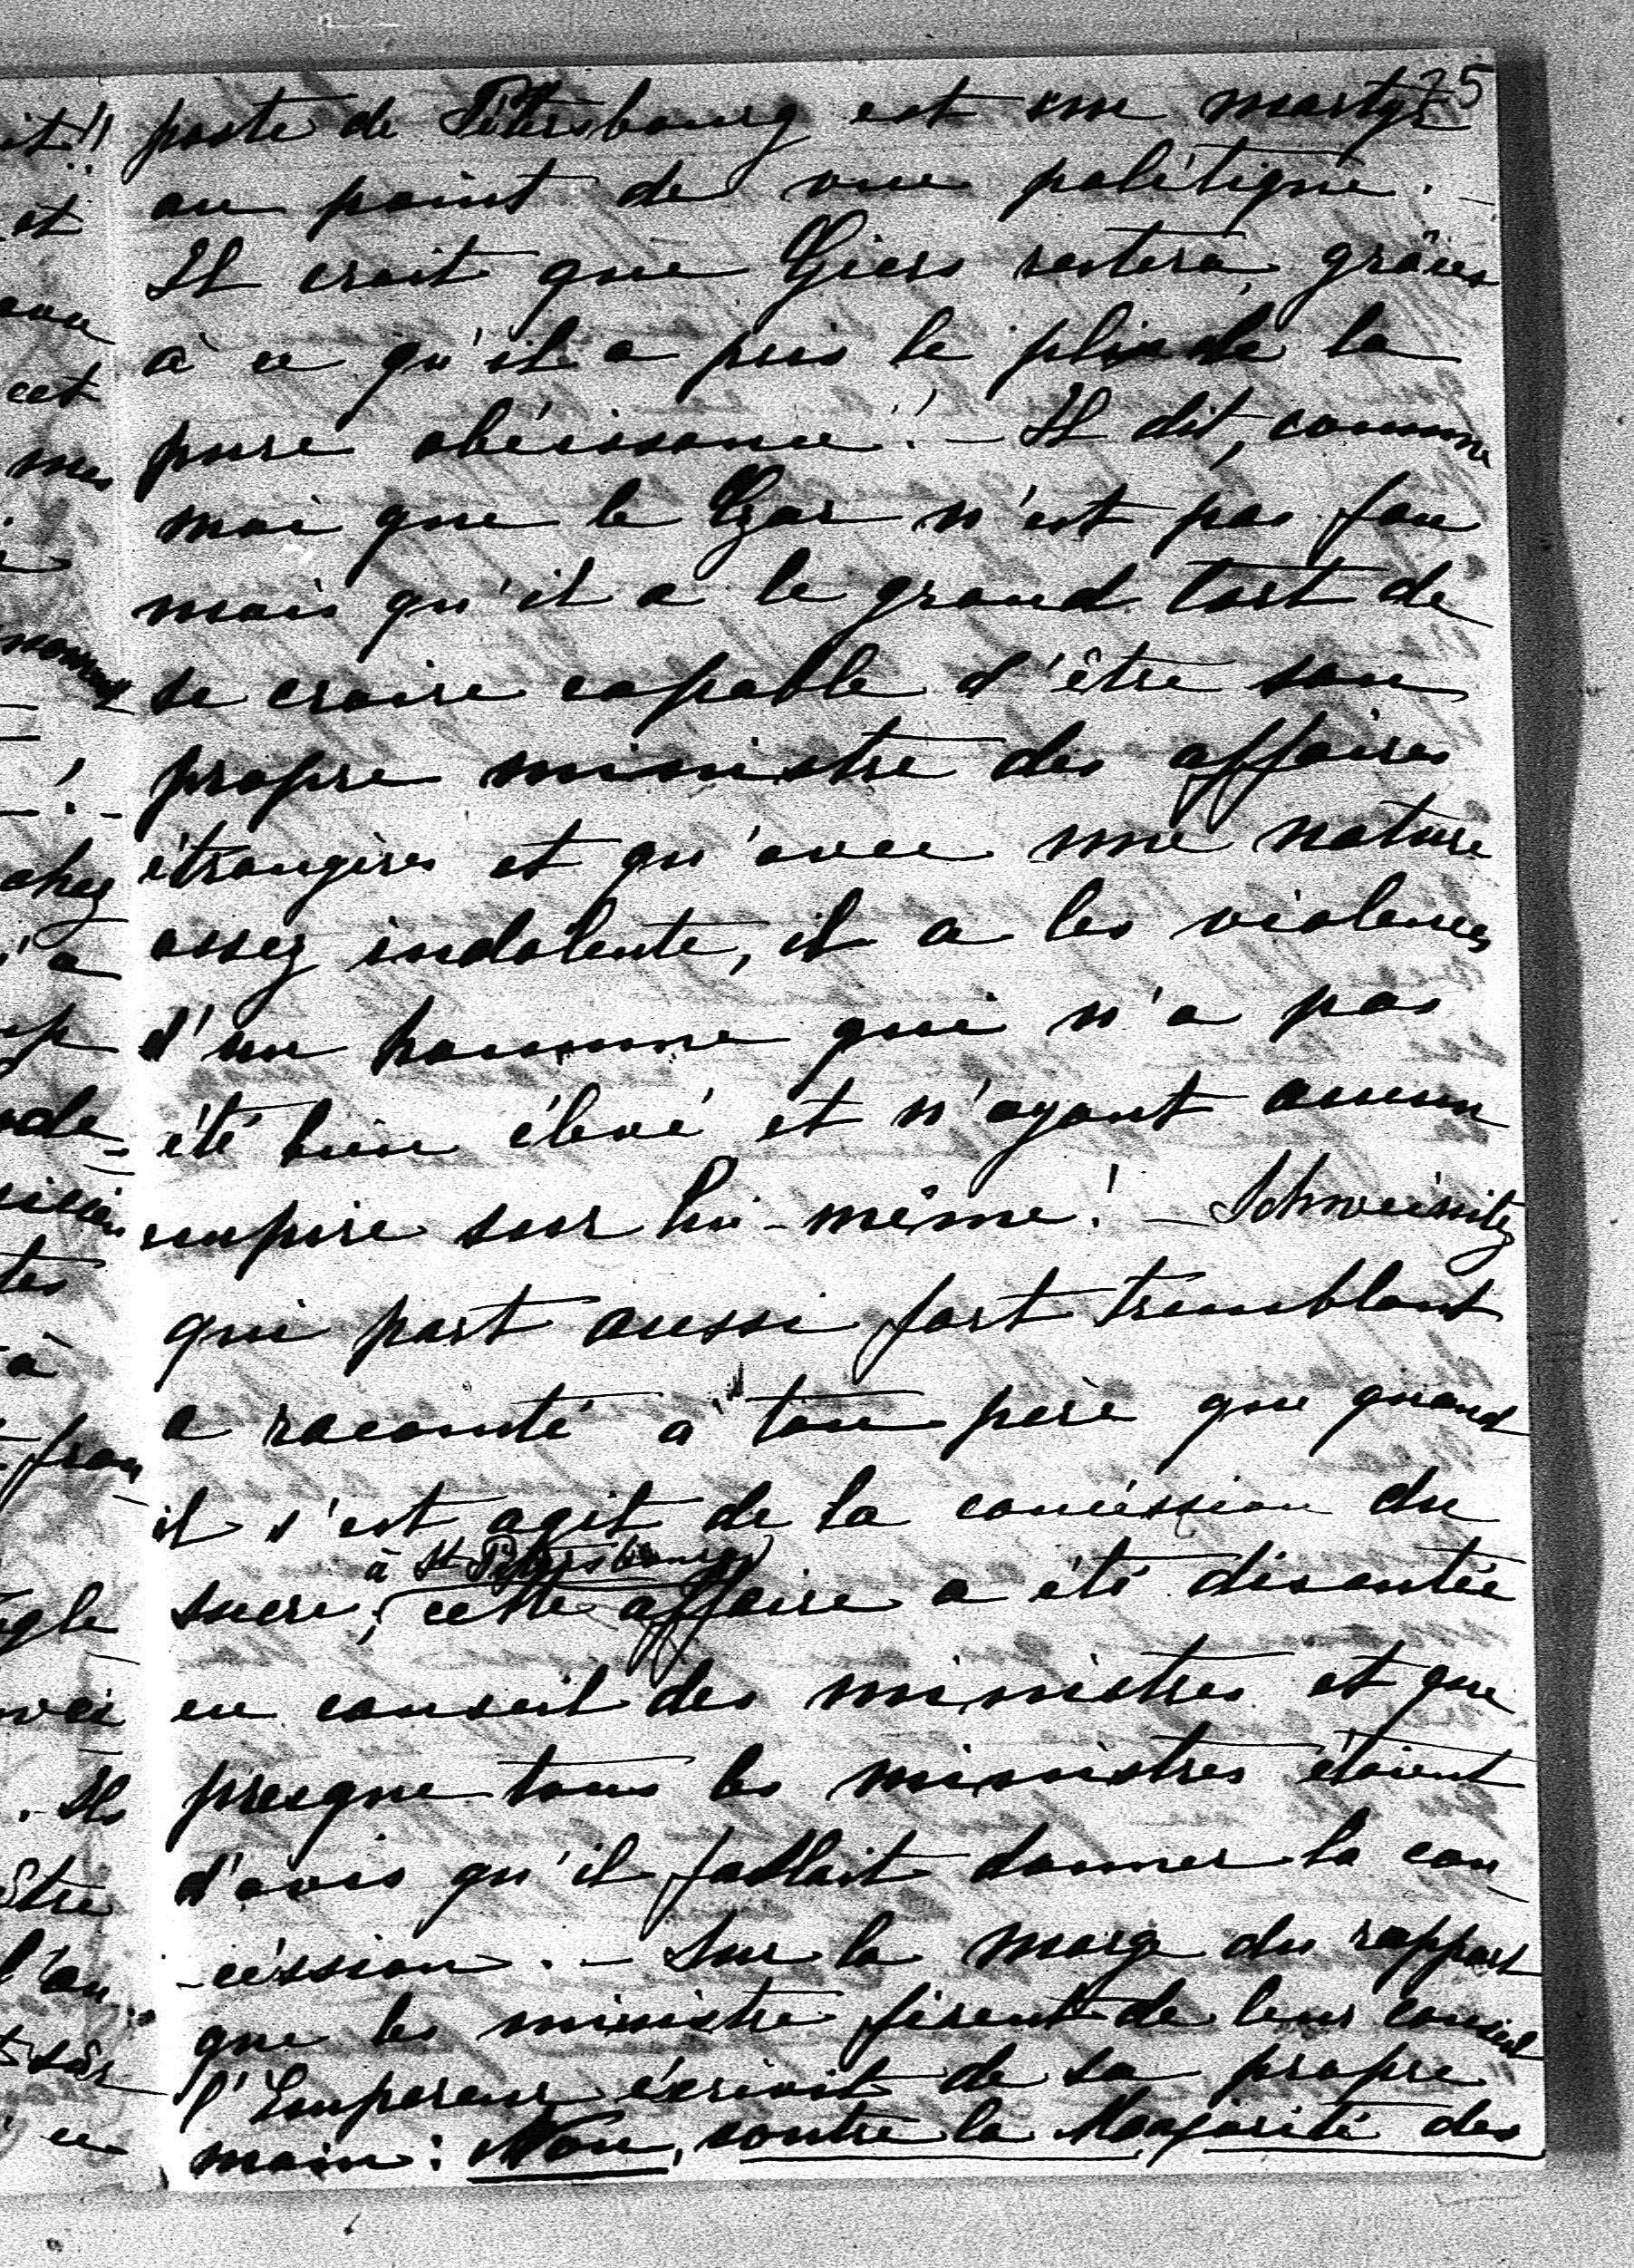 25
poste de Pétersbourg est un martyr
au point de vue politique.
Il croit que Giers restera, grâces
à ce qu'il a pris le pli de la
pure obéissance! – Il dit, comme
moi que le Czar n'est pas fou
mais qu'il a le grand tort de
se croire capable d'être son
propre ministre des affaires
étrangères et qu'avec une nature
assez indolente, il a les violences
d'un homme qui n'a pas
été bien élevé et n'ayant aucun
empire sur lui-même! – Schweinitz
qui part aussi fort tremblant
a raconté à ton père que quand
il s'est agit de la concéssion du
à St Pétersbourg
sucre, cette affaire a été discutée
en conseil des ministres et que
presque tous les ministres étaient
d'avis qu'il fallait donner la con
-céssion. – Sur la marge du rapport
que les ministre firent de leur conseil
l'Empereur écrivit de sa propre
main: Non, contre la Majorité des